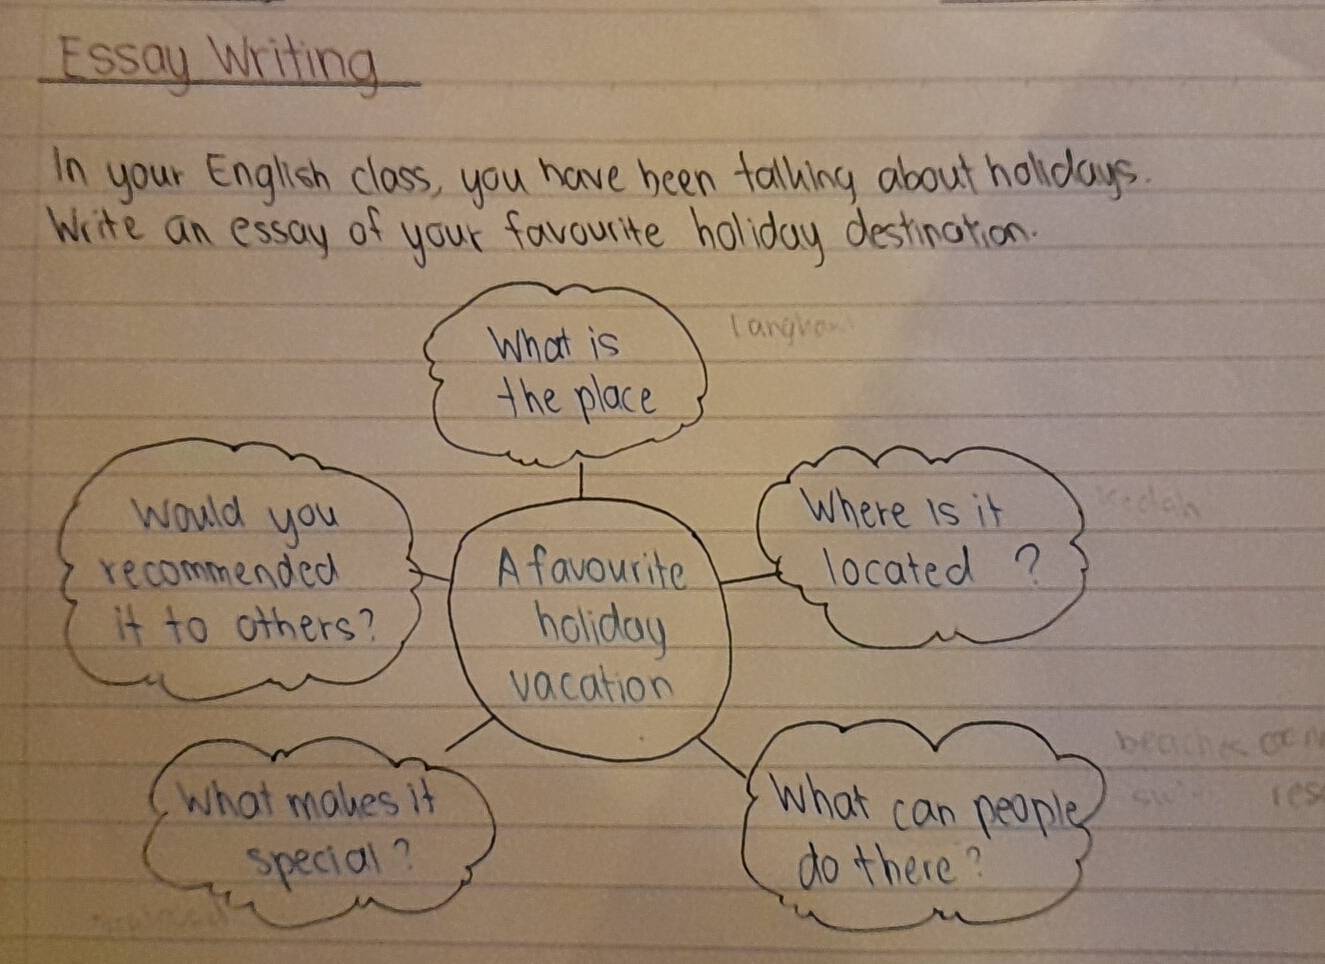 Essay Writing
In your English class, you have been talking about holidays.
Write an essay of your favourite holiday destination.
What is
the place
Would you
recommended
it to others?
A favourite
holiday
vacation
Where is it
located ?
kedah
What makes it
special?
What can people
do there?
beaches